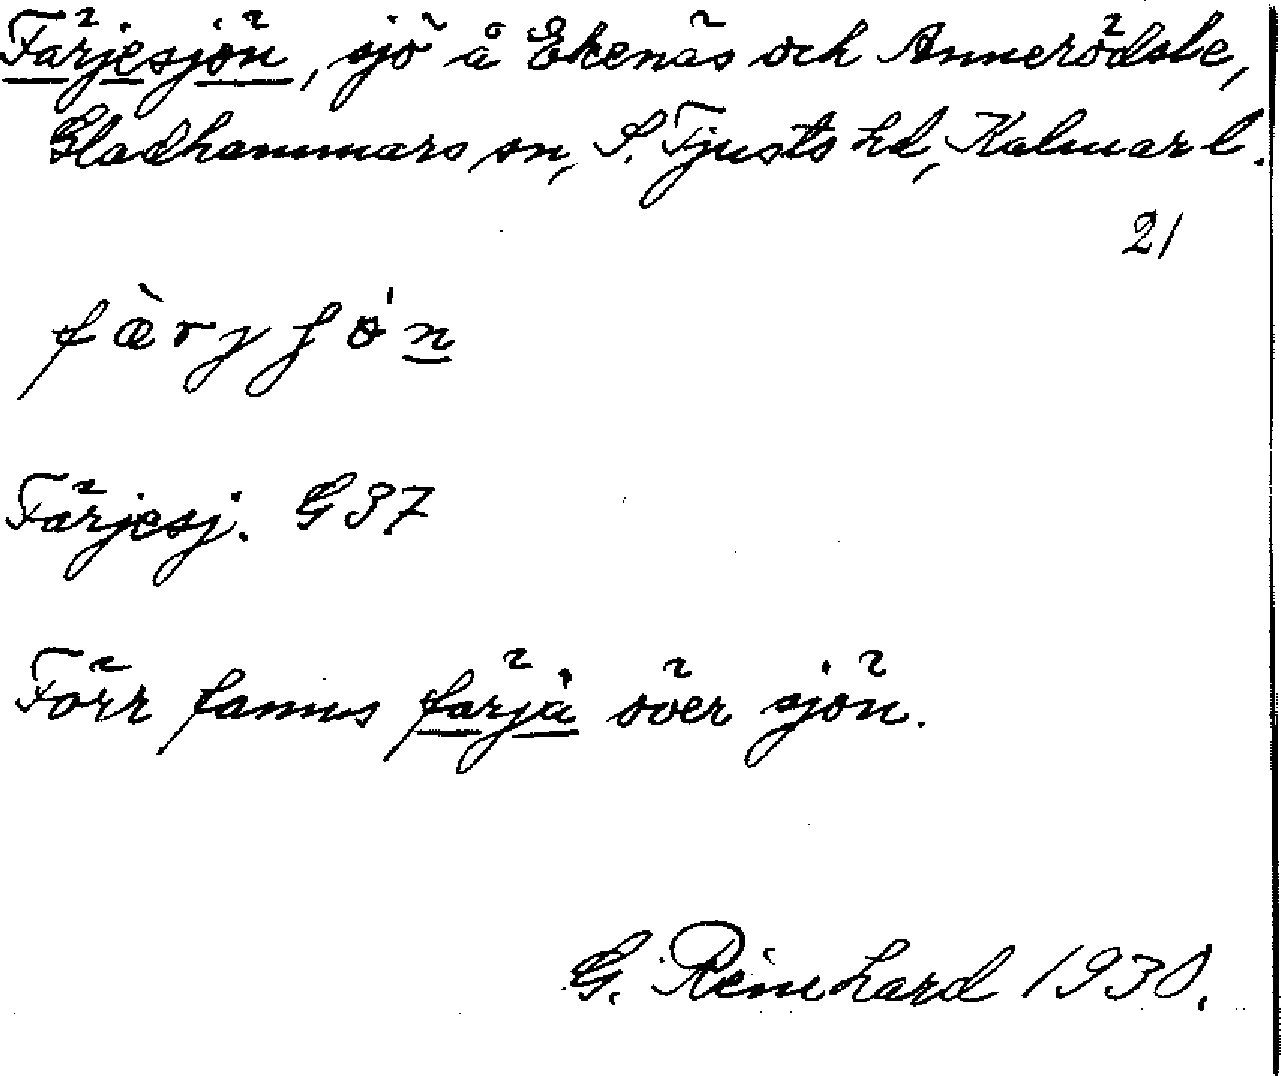 Färjesjön, sjö å Ekenäs och Annerödsle,
Gladhammars sn, S. Tjusts hd, Kalmar l.
21
fæ̀rjʃɵ́n
Färjesj. G 37
Förr fanns färja över sjön.
G. Reinhard 1930.